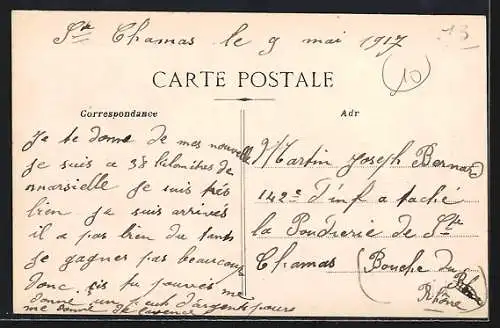 Ste Chamas le 9 mai 1917
13
10
CARTE POSTALE
Correspondance
Adr
Je te donne de mes nouvelle
je suis a 38 kilomètres de
marsielle je suis très
bien je suis arrivés
il a pas bien du tants
je gagnes pas beaucoup
donc si tu pouvés me
donné un peut d'argent pours
me donné de l'avence
Martin Joseph Bernard
142e d'inf a taché
la Poudrerie de Ste
Chamas (Bouche du
Rhône
Rhône